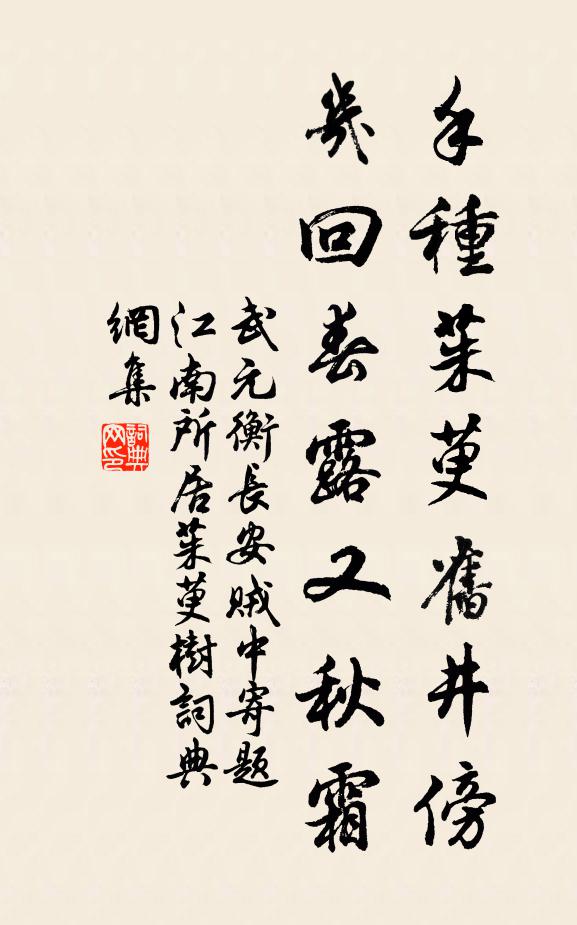 手種茱萸舊井傍
幾回春露又秋霜
武元衡長安賊中寄題
江南所居茱萸樹詞典
網集
詞典網印